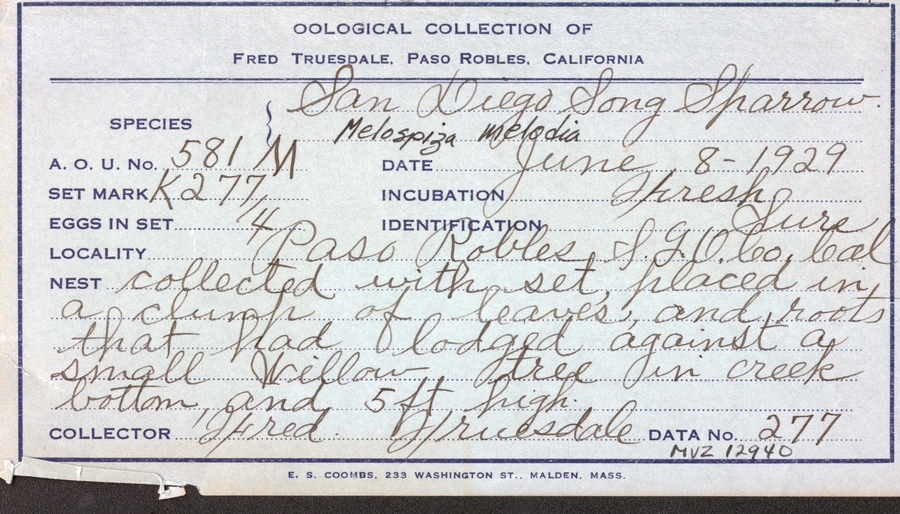 OOLOGICAL COLLECTION OF
FRED TRUESDALE, PASO ROBLES, CALIFORNIA
San Diego Song Sparrow.
SPECIES
Melospiza melodia
A. O. U. No. 581 M DATE June, 8-1929
SET MARK K277, INCUBATION Fresh,
EGGS IN SET 4 IDENTIFICATION Sure
LOCALITY Paso Robles, S.L.O. Co. Cal
NEST collected with set, placed in
a clump of leaves, and roots
that had lodged against a
small Willow, tree in creek
bottom, and 5 ft high.
COLLECTOR Fred. Truesdale DATA No. 277
MVZ 12940
E. S. COOMBS, 233 WASHINGTON ST., MALDEN, MASS.